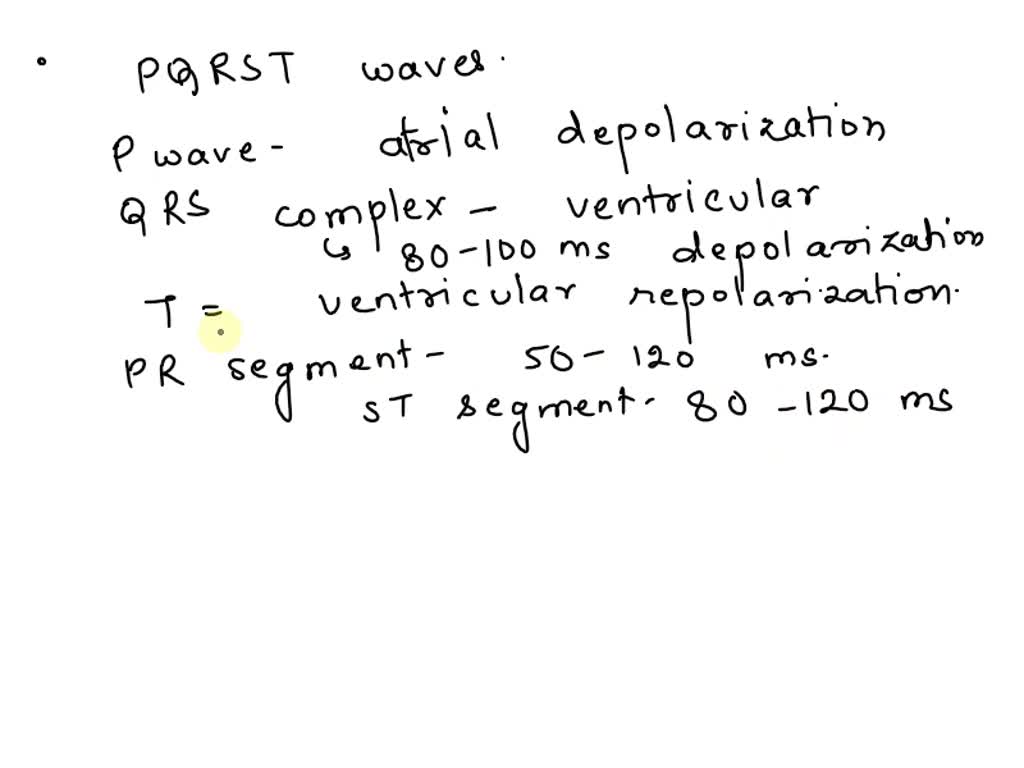 PQRST waves.
P wave - atrial depolarization
QRS complex - ventricular
↳ 80-100 ms depolarization
T = ventricular repolarization.
PR segment - 50-120 ms.
ST segment - 80-120 ms